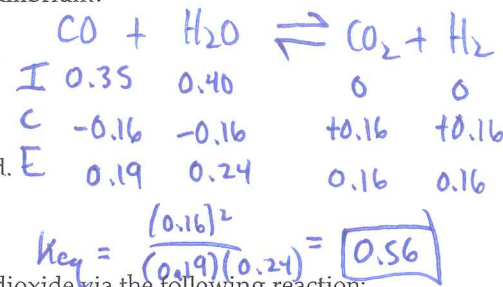 CO + H₂O ⇌ CO₂ + H₂
I 0.35 0.40 0 0
C -0.16 -0.16 +0.16 +0.16
d. E 0.19 0.24 0.16 0.16
Keq = (0.16)² / (0.19)(0.24) = 0.56
dioxide via the following reaction: